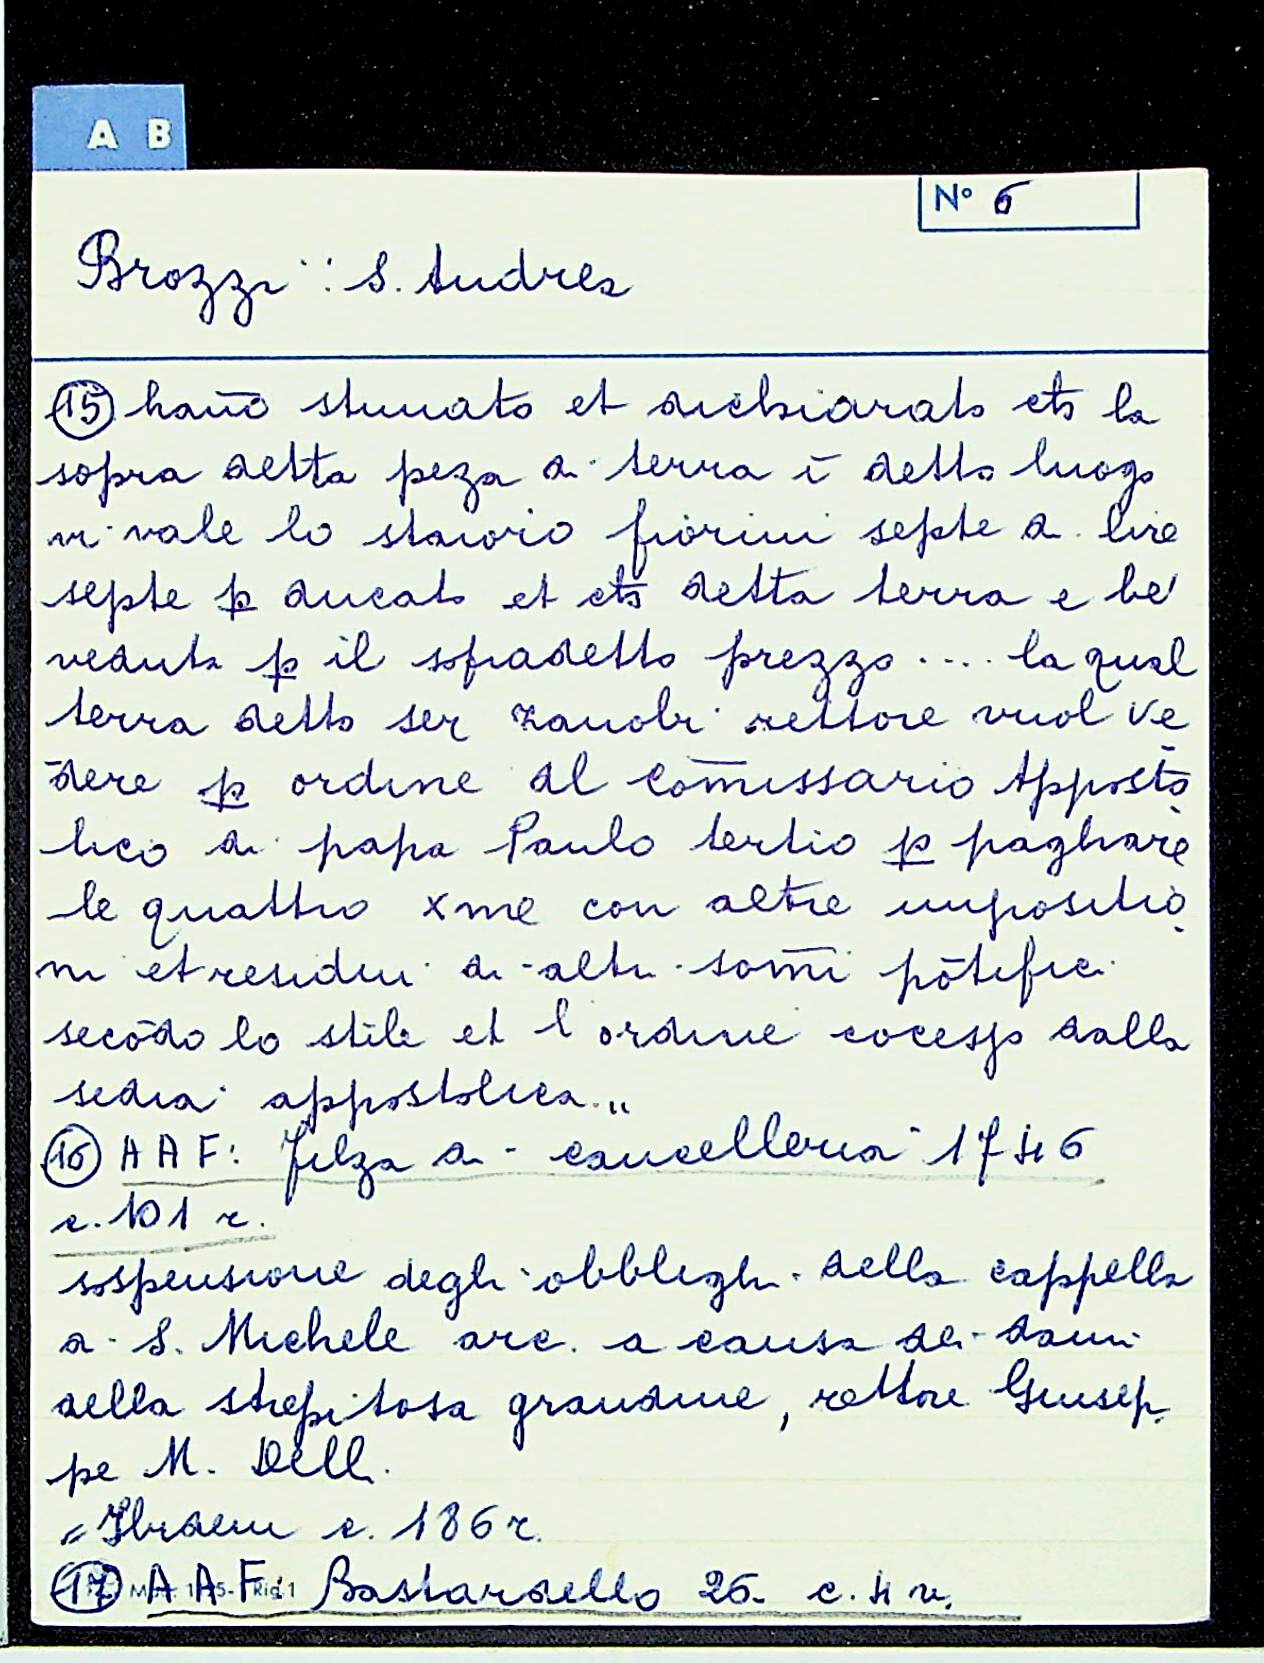 A B
Nº 6
Brozzi : S. Andrea
(15) hanō stimato et dichiarato ch̄ la
sopra detta peza di terra ī detto luogo
vi vale lo staioro fiorini septe di lire
septe p̱ ducato et ch̄ detta terra e be'
veduta p̱ il sopradetto prezzo .... la qual
terra detto ser zanobi rettore vuol vē
dere p̱ ordine del comissario Apposto
lico di papa Paulo tertio p̱ paghare
le quattro xme con altre impositio
ni et residui di altri somi pōtefici
secōdo lo stile et l'ordine cocesso dalla
sedia appostolica.."
(16) AAF: Filza di cancelleria 1746
c. 101 r.
sospensione degli obblighi della cappella
di S. Michele arc. a causa dei danni
della strepitosa grandine, rettore Giusep
pe M. Delli.
" Ibidem c. 186 r.
(17) AAF: Bastardello 26. c. 4 v.